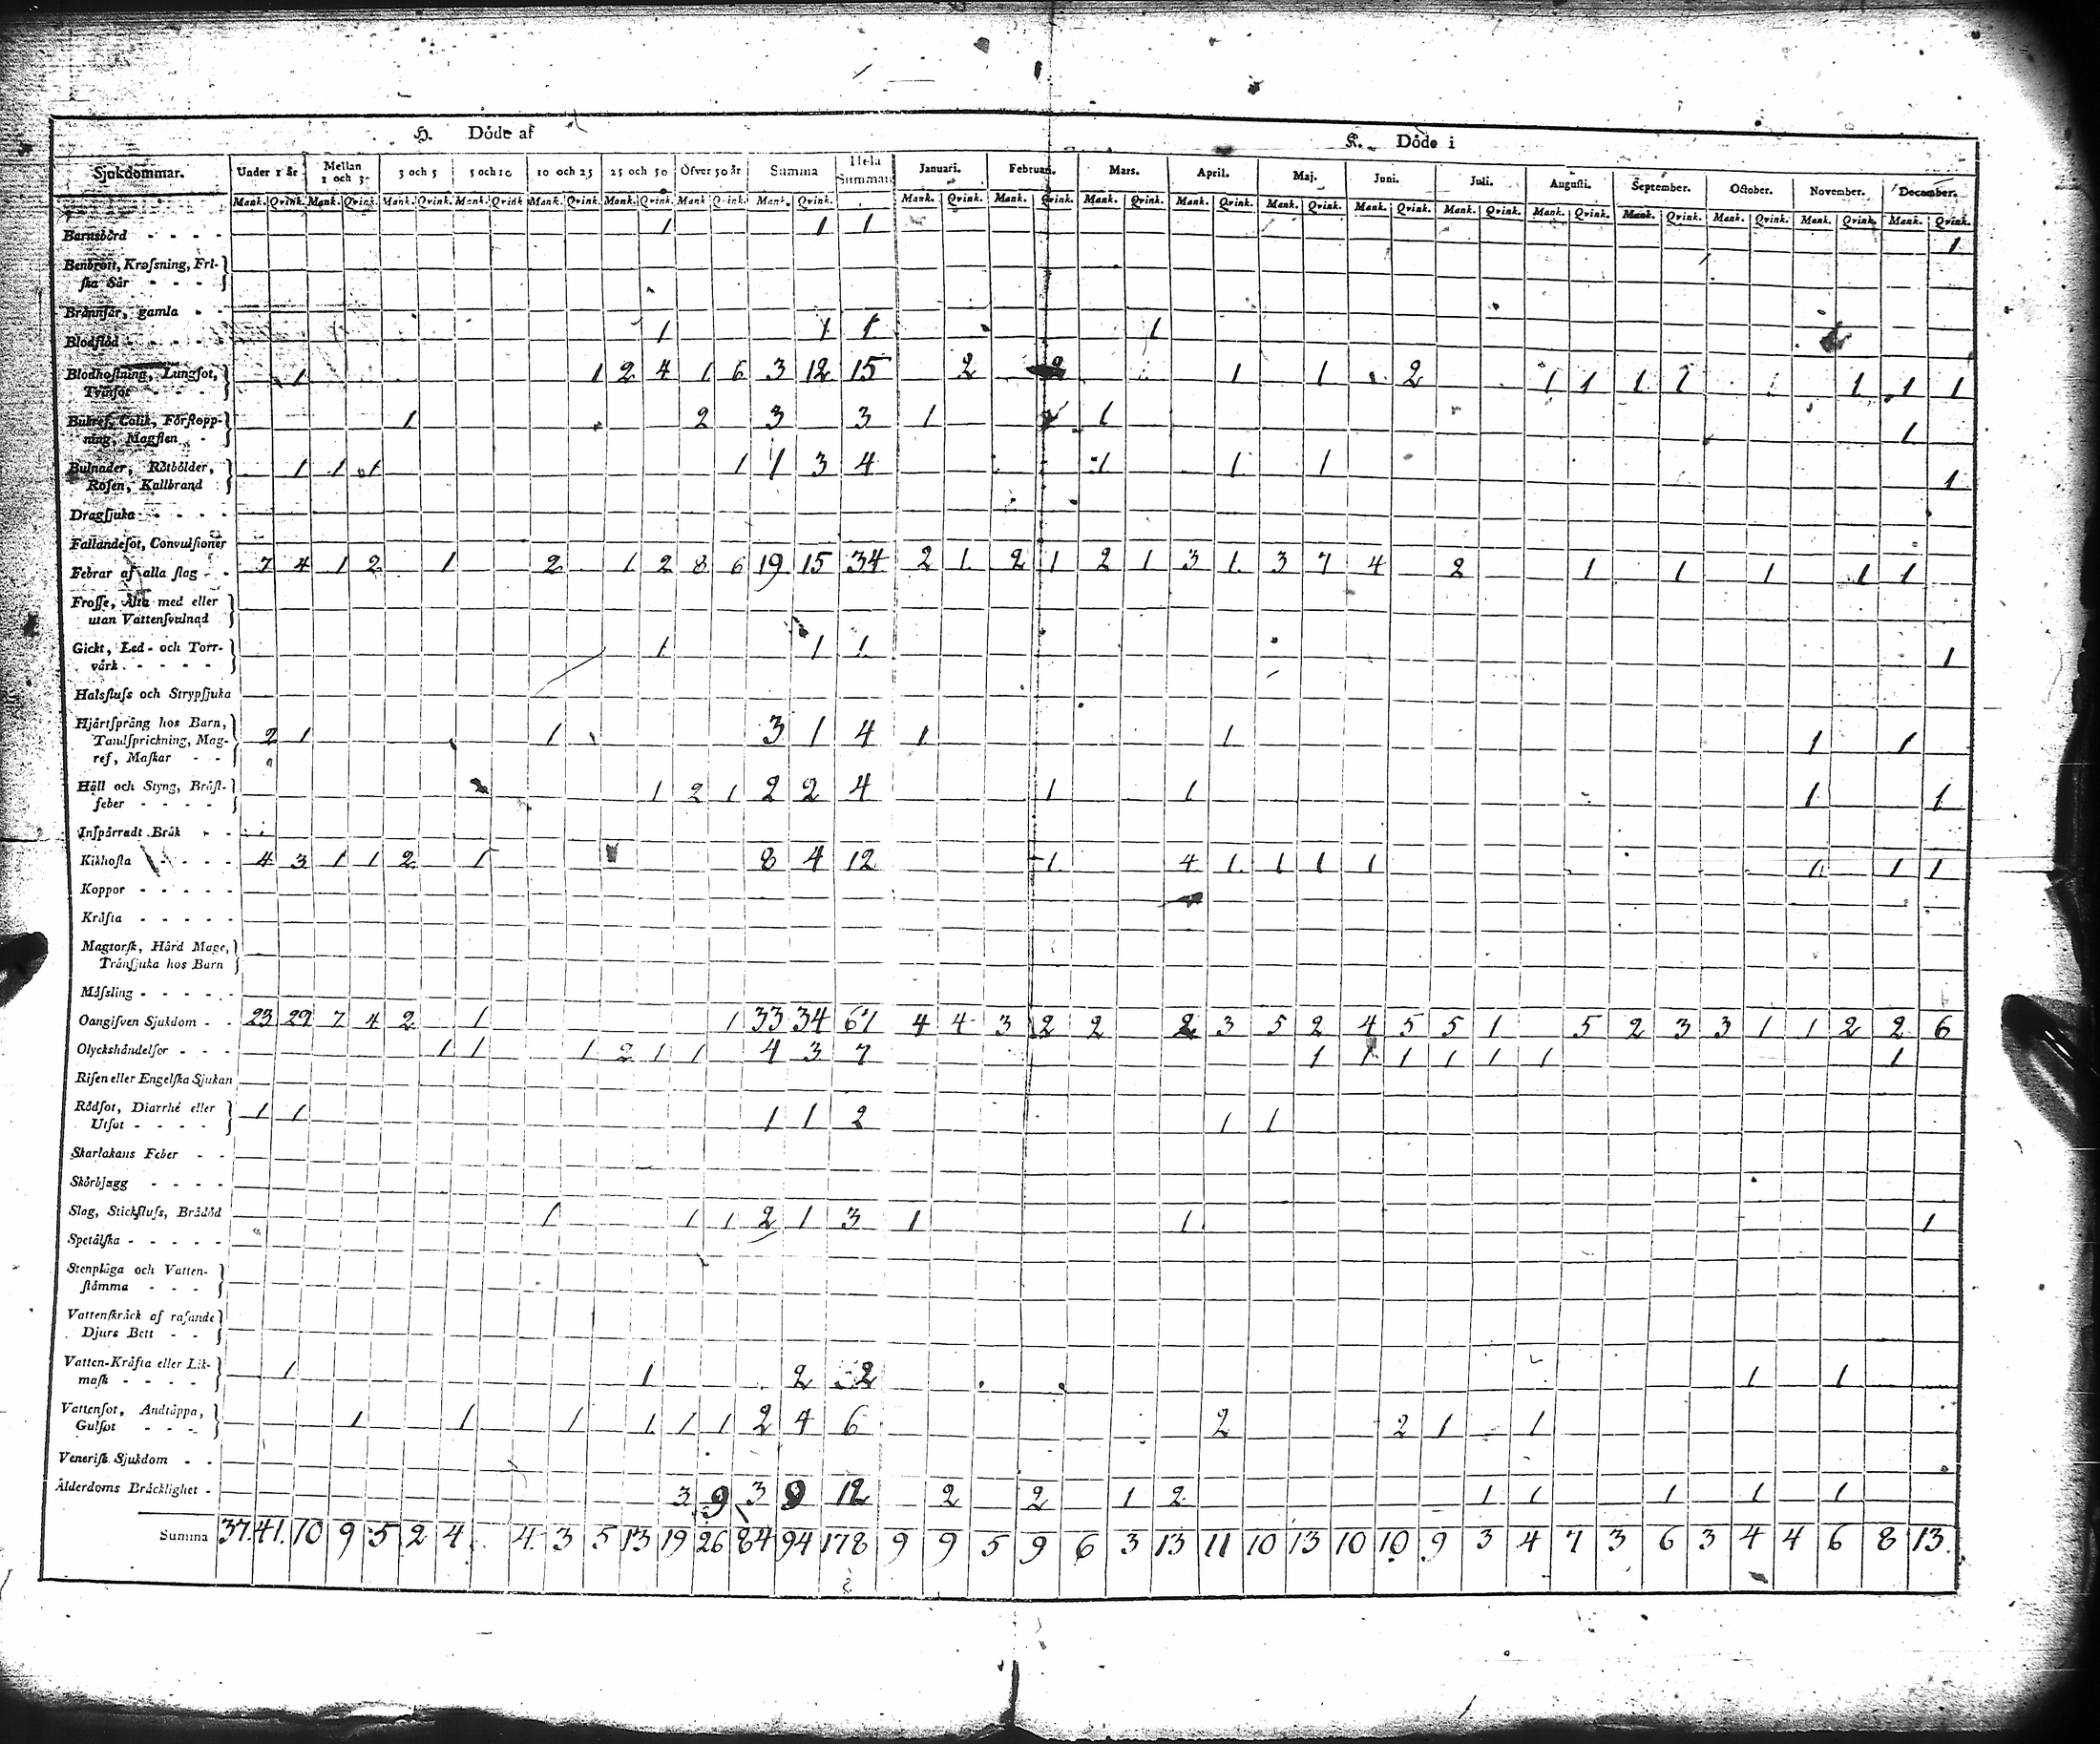 H. Döde af
K. Döde i
Sjukdommar. Under 1 år Mellan 1 och 3 3 och 5 5 och 10 10 och 25 25 och 50 Öfver 50 år Summa Hela Summan Januari. Februari. Mars. April. Maj. Juni. Juli. Augusti. September. October. November. December.
Mank. Qvink. Mank. Qvink. Mank. Qvink. Mank. Qvink Mank. Qvink. Mank. Qvink. Mank Qvink. Mank. Qvink. Mank. Qvink. Mank. Qvink. Mank. Qvink. Mank. Qvink. Mank. Qvink. Mank. Qvink. Mank. Qvink. Mank. Qvink. Mank. Qvink. Mank. Qvink. Mank. Qvink. Mank. Qvink.
Barnsbörd - - - - 1 1 1 1
Benbrott, Kroſsning, Friſka Sår - - - -
Brännſår, gamla - -
Blodflöd - - - - - 1 1 1 1
Blodhoſtning, Lungſot,
Tvinſot - - - - 1 1 2 4 1 6 3 12 15 2 2 1 1 2 1 1 1 1 1 1 1
Bukref, Colik, Förſtopp-
ning, Magſten - - 1 2 3 3 1 1 1
Bulnader, Rötbölder,
Roſen, Kallbrand 1 1 1 1 1 3 4 1 1 1 1
Dragſjuka - - - - -
Fallandeſot, Convulſioner
Febrar af alla ſlag - - 7 4 1 2 1 2 1 2 8 6 19 15 34 2 1 2 1 2 1 3 1 3 7 4 2 1 1 1 1 1
Froſſe, Älta med eller
utan Vattenſvulnad
Gickt, Led- och Torr-
värk - - - - - 1 1 1 1
Halsfluſs och Strypſjuka
Hjärtſpräng hos Barn,
Tandſprickning, Mag-
ref, Maſkar - - 2 1 1 3 1 4 1 1 1 1
Håll och Styng, Bröſt-
feber - - - - 1 2 1 2 2 4 1 1 1 1
Inſpärradt Bråk - -
Kikhoſta - - - 4 3 1 1 2 1 8 4 12 1 4 1 1 1 1 1 1 1
Koppor - - - - -
Kräfta - - - - -
Magtorſk, Hård Mage,
Tränſjuka hos Barn
Mäſsling - - - - -
Oangifven Sjukdom - - 23 29 7 4 2 1 1 33 34 67 4 4 3 2 2 2 3 5 2 4 5 5 1 5 2 3 3 1 1 2 2 6
Olyckshändelſer - - - 1 1 1 2 1 1 4 3 7 1 1 1 1 1 1 1
Riſen eller Engelſka Sjukan
Rödſot, Diarrhé eller
Utſot - - - - 1 1 1 1 2 1 1
Skarlakans Feber - -
Skörbjugg - - - -
Slag, Stickfluſs, Brådöd 1 1 1 2 1 3 1 1 1
Spetälſka - - - - -
Stenplåga och Vatten-
ſtämma - - -
Vattenſkräck af raſande
Djurs Bett - -
Vatten-Kräfta eller Lik-
maſk - - - - 1 1 2 2 1 1
Vattenſot, Andtäppa,
Gulſot - - - 1 1 1 1 1 1 2 4 6 2 2 1 1
Veneriſk Sjukdom - -
Ålderdoms Bräcklighet - 3 9 3 9 12 2 2 1 2 1 1 1 1 1
Summa 37. 41. 10 9 5 2 4 4 3 5 13 19 26 84 94 178 9 9 5 9 6 3 13 11 10 13 10 10 9 3 4 7 3 6 3 4 4 6 8 13.